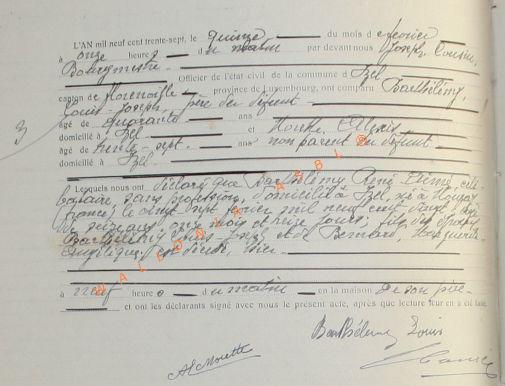 3
L'AN mil neuf cent trente-sept, le quinze du mois de février
à onze heures du matin par devant nous Joseph Cousin,
Bourgmestre
Officier de l'état civil de la commune d'Izel,
canton de Florenville province de Luxembourg, ont comparu Barthélemy,
Louis Joseph, père du défunt
âgé de quarante ans
domicilié à Izel et Morette, Alexis
âgé de trente-sept ans non parent du défunt
domicilié à Izel
Lesquels nous ont déclaré que Barthélémy René Rémy, céli-
bataire, sans profession, domicilié à Izel, né à
(France) le vingt sept mil neuf cent vingt, âgé
de seize ans, mois et seize jours, fils des époux
Barthélemy Louis Joseph et de Bernard, Marguerite
Angélique, est décédé, hier
à neuf heures du matin en la maison de son père
et ont les déclarants signé avec nous le présent acte, après que lecture leur en a été faite.
Barthélemy Louis
Al Morette
WALBONIA ASBL